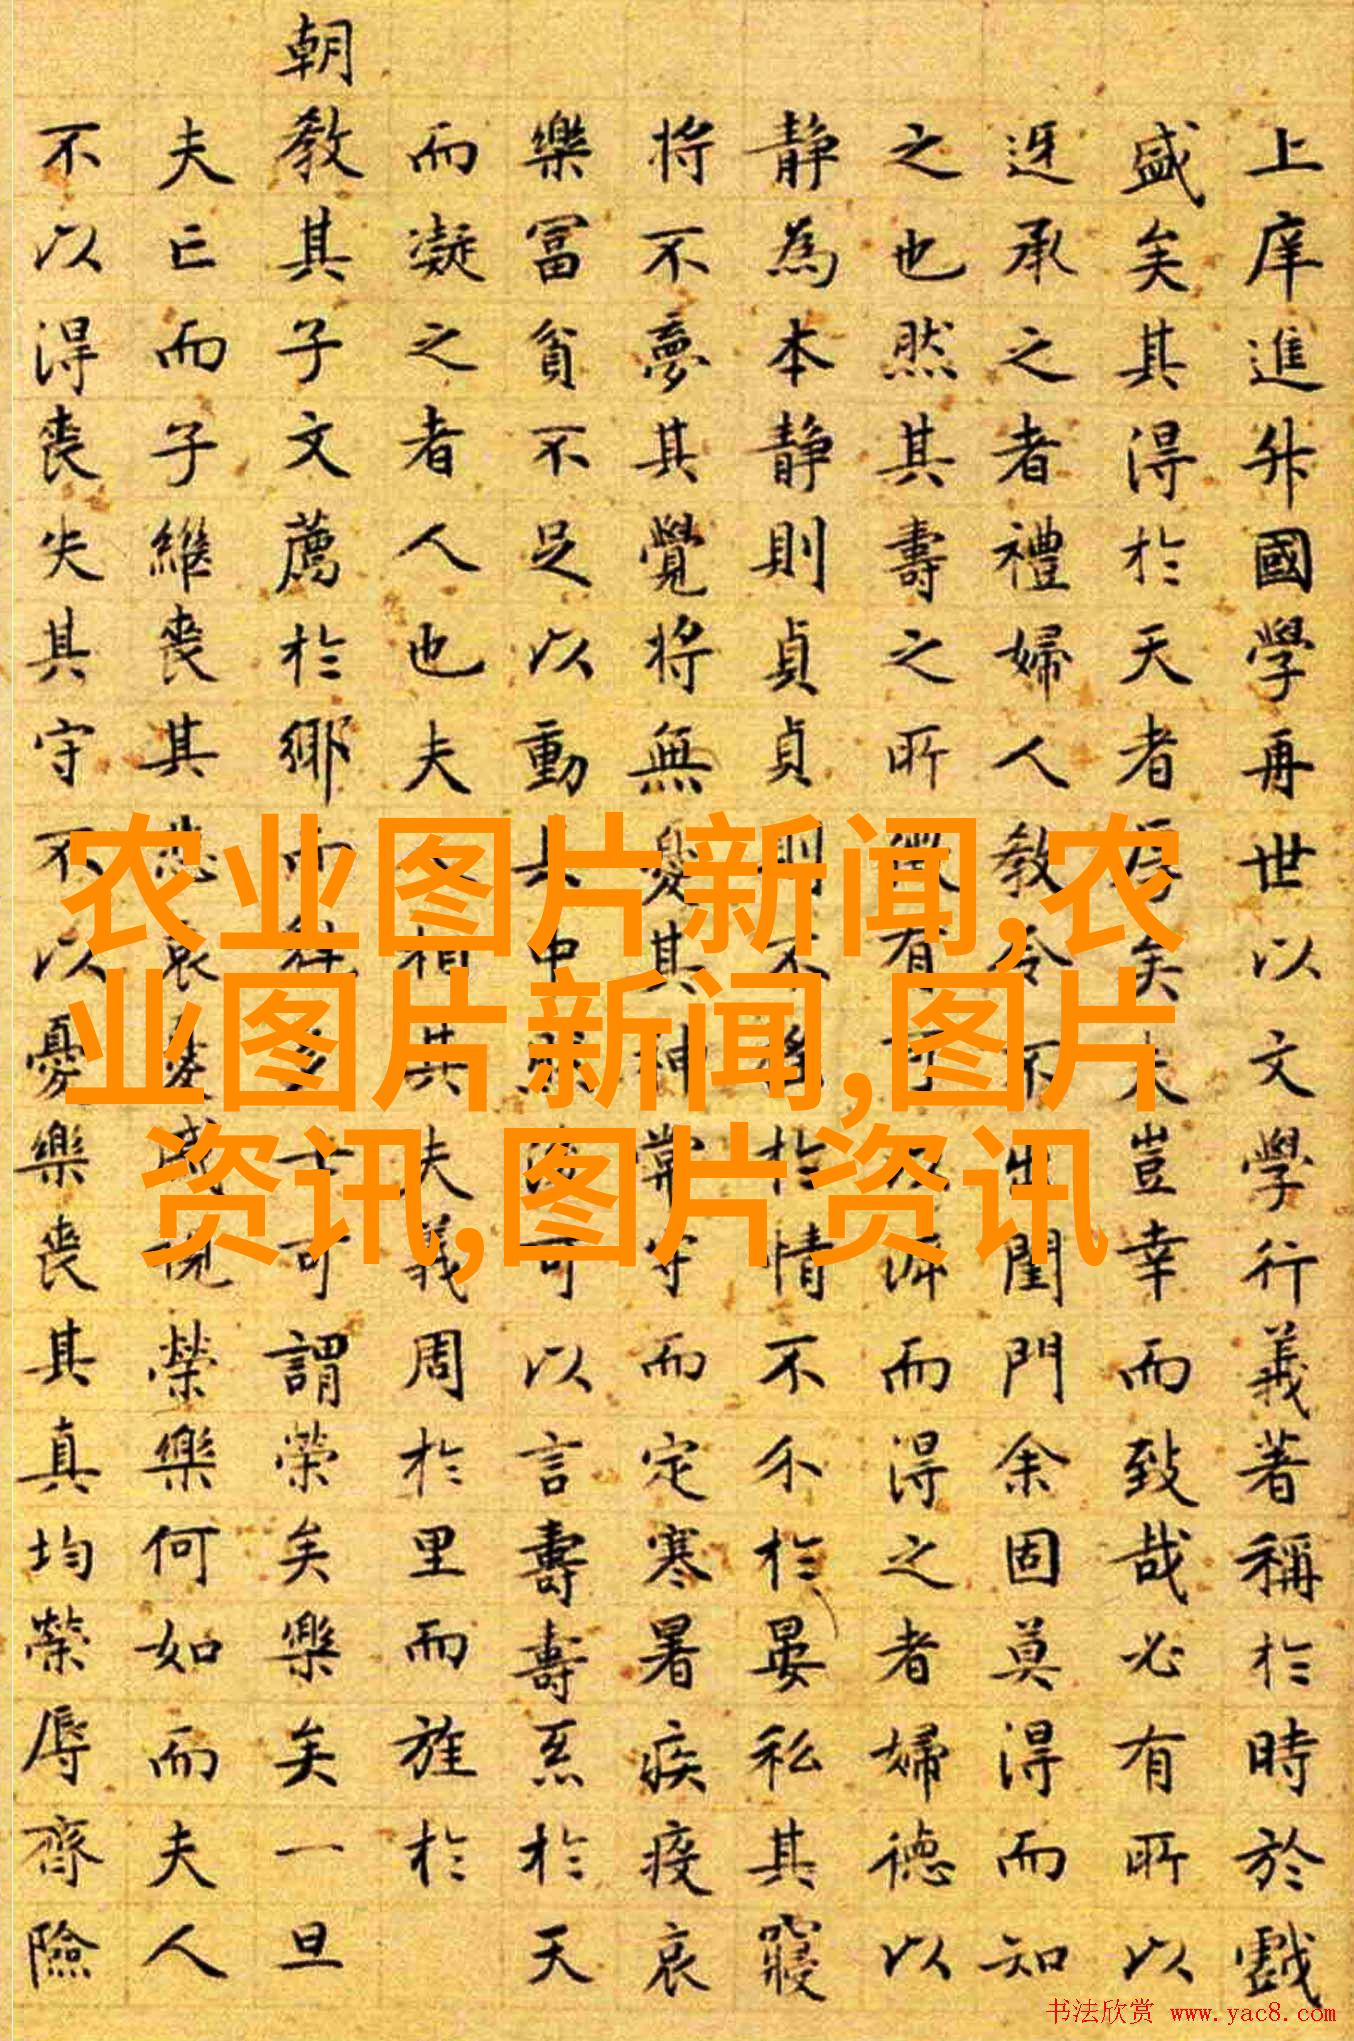 上庠進升國學再世以文學行義著稱於時於戲
盛矣其得於天者厚矣夫豈幸而致哉必有所以
迓承之者禮婦人教令不出閨門余固莫得而知
之也然其壽之所徵有可而得之者婦德以
静為本静則貞貞則不移於情不尒於晏私其寢
將不夢其覺將無憂其神常守而定寒暑疾疫哀
樂富貧不足以動其中可以言壽壽於天
而凝之者人也夫相其夫義周於里而旌於
朝教其子文薦於鄉而士可謂榮矣樂矣一旦
夫亡而子繼喪其悲哀戚視榮樂何如而夫人
不以得喪失其守不以憂樂喪其真均榮辱齊險
农业图片新闻,农
业图片新闻,图片
资讯,图片资讯
书法欣赏 www.yac8.com